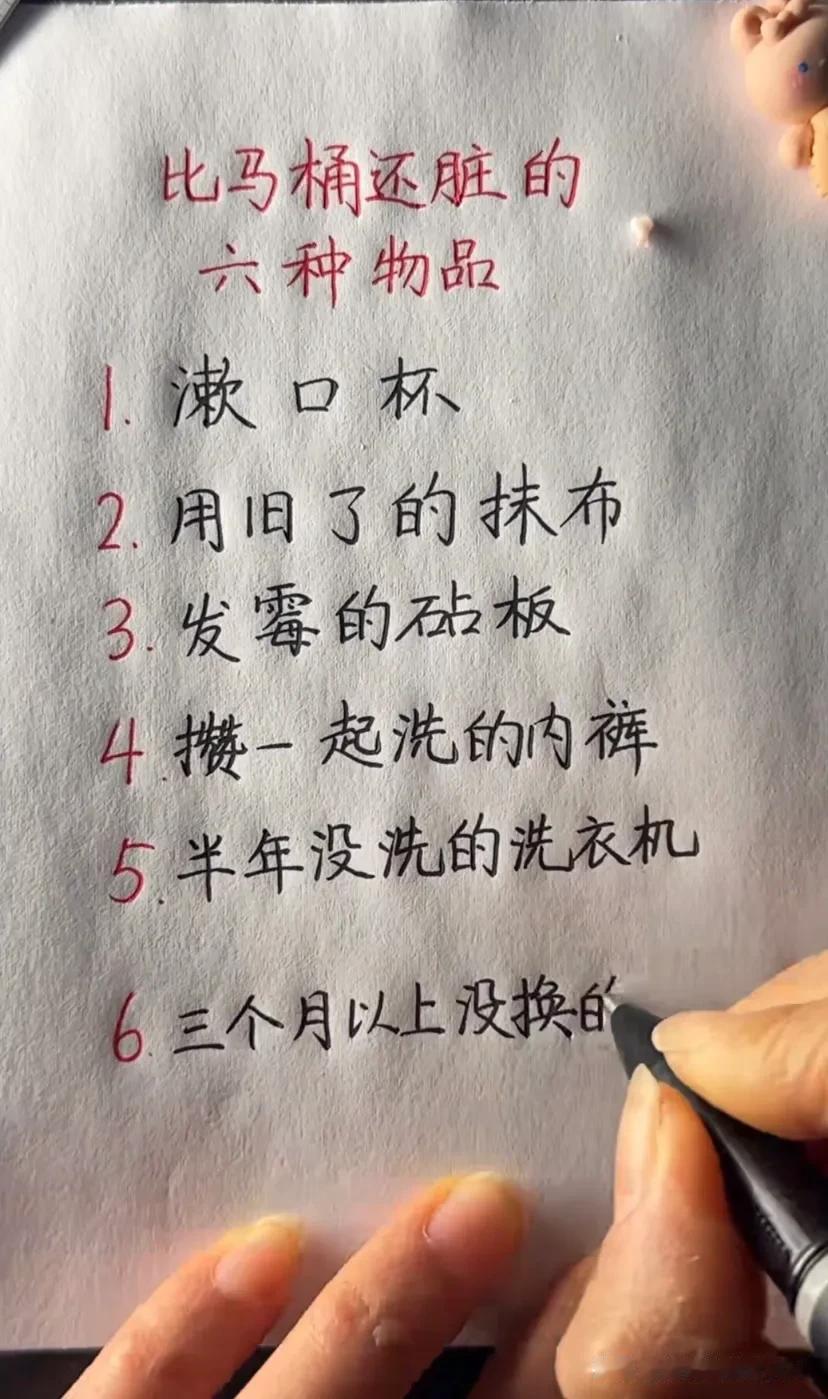 比马桶还脏的
六种物品
1. 漱口杯
2. 用旧了的抹布
3. 发霉的砧板
4. 攒一起洗的内裤
5. 半年没洗的洗衣机
6. 三个月以上没换的